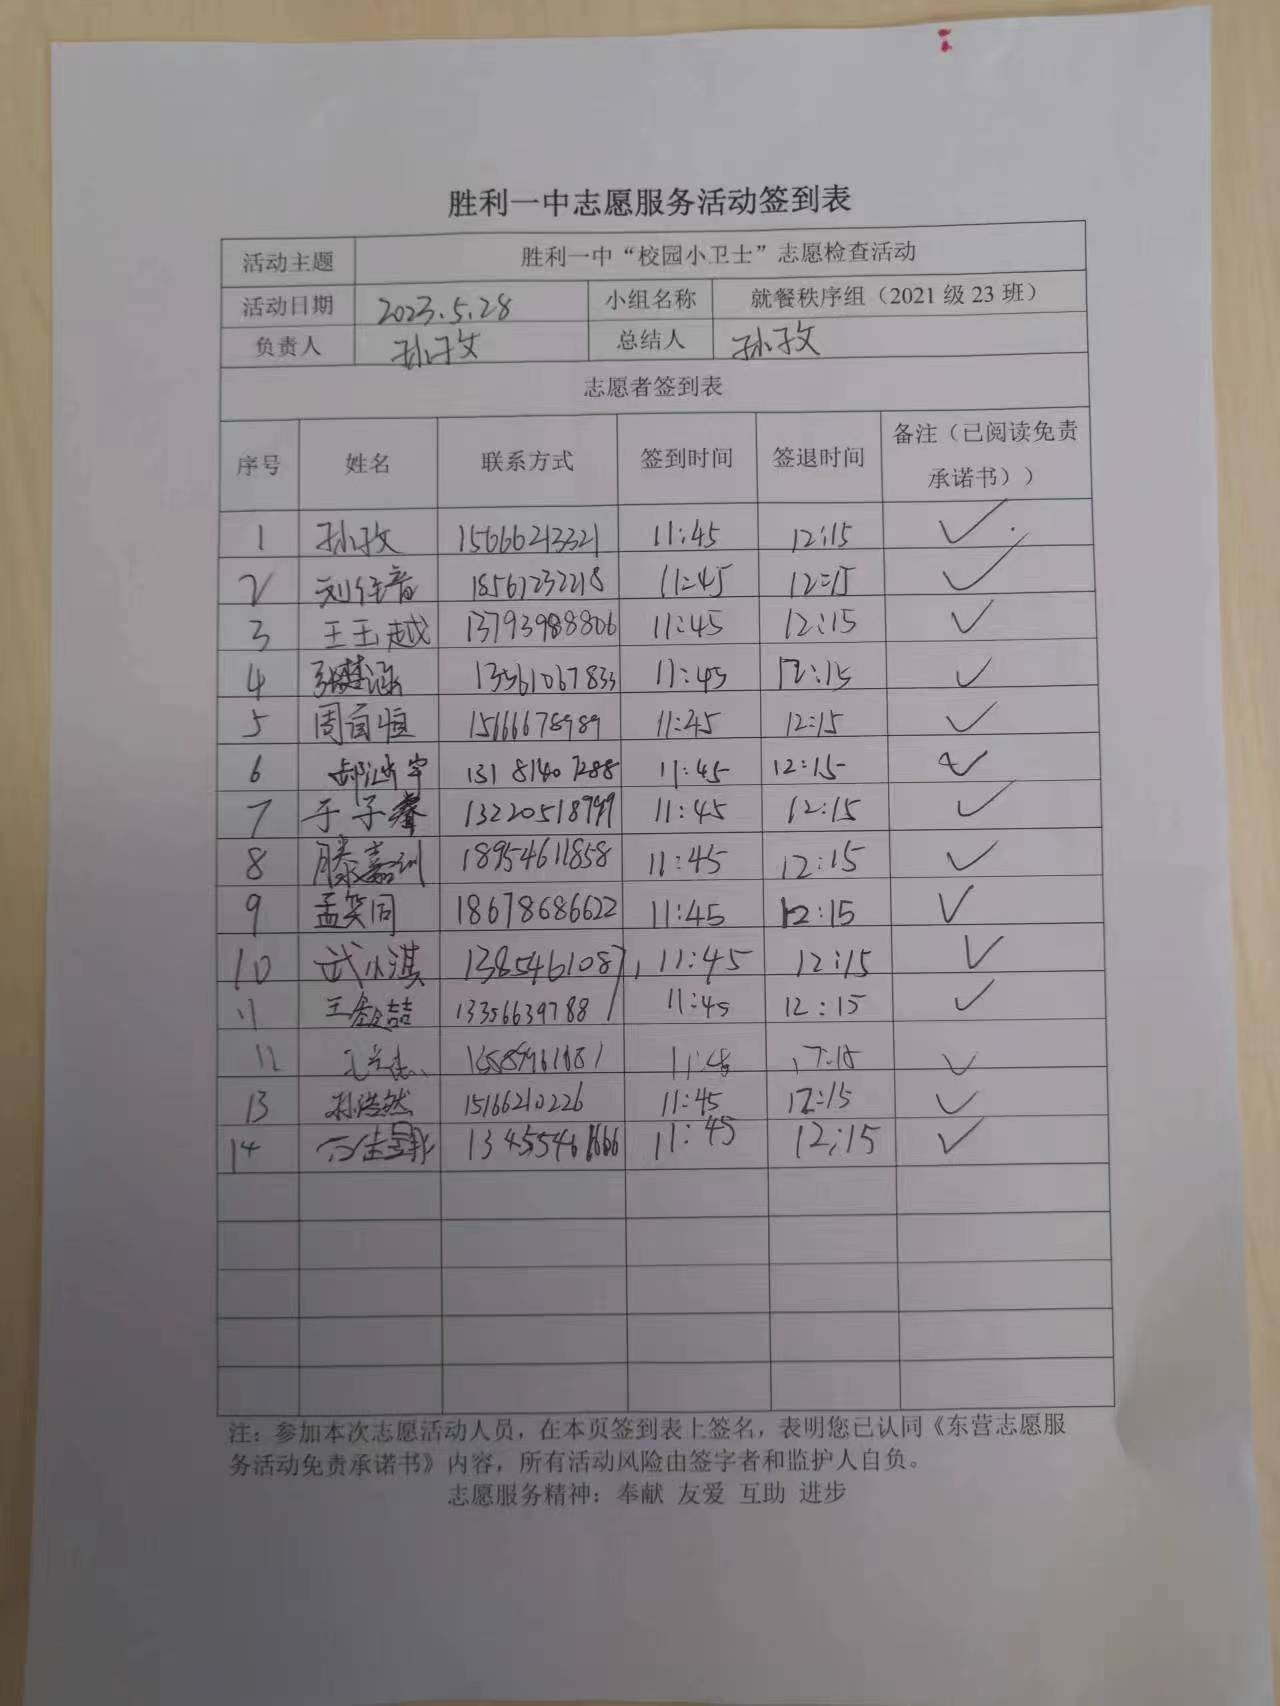 胜利一中志愿服务活动签到表
活动主题 胜利一中“校园小卫士”志愿检查活动
活动日期 2023.5.28 小组名称 就餐秩序组（2021 级 23 班）
负责人 孙孜 总结人 孙孜
志愿者签到表
序号 姓名 联系方式 签到时间 签退时间 备注（已阅读免责承诺书））
1 孙孜 15666213321 11:45 12:15 ✓
2 刘佳音 18561232218 11:45 12:15 ✓
3 王玉越 13793988806 11:45 12:15 ✓
4 13561067833 11:45 12:15 ✓
5 周百恒 15666678989 11:45 12:15 ✓
6 13181407288 11:45 12:15 ✓
7 于子睿 11:45 12:15 ✓
8 滕嘉训 18954611858 11:45 12:15 ✓
9 孟笑同 18678686622 11:45 12:15 ✓
10 武小淇 13854610871 11:45 12:15 ✓
11 13356639788 11:45 12:15 ✓
12 ✓
13 孙浩然 15166210226 11:45 12:15 ✓
14 11:45 12:15 ✓
注：参加本次志愿活动人员，在本页签到表上签名，表明您已认同《东营志愿服
务活动免责承诺书》内容，所有活动风险由签字者和监护人自负。
志愿服务精神：奉献 友爱 互助 进步